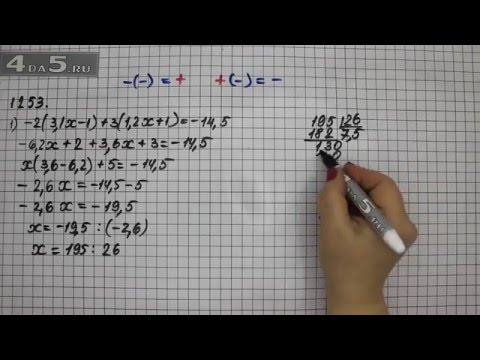 4DA5.RU
-(-) = + +(-) = -
1253.
1) -2(3,1x-1)+3(1,2x+1)=-14,5
-6,2x+2+3,6x+3=-14,5
x(3,6-6,2)+5=-14,5
-2,6x=-14,5-5
-2,6x=-19,5
x=-19,5:(-2,6)
x=195:26
195 26
182 7,5
130
0